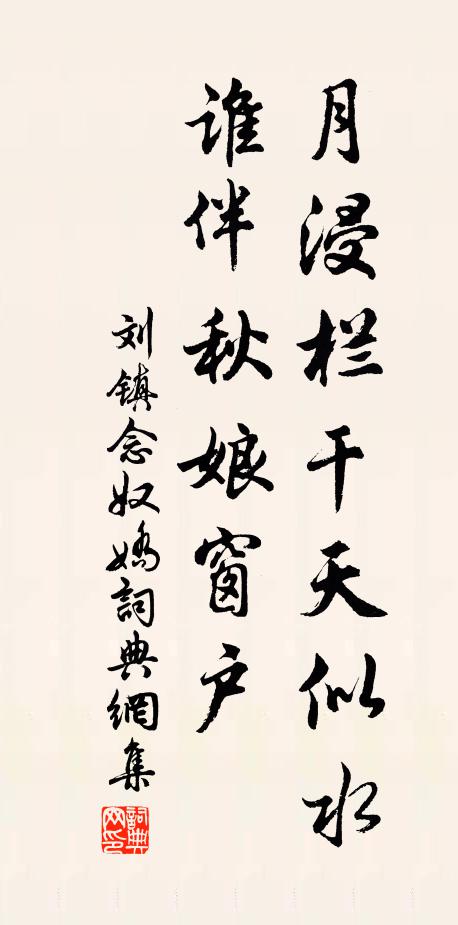 月浸栏干天似水
谁伴秋娘窗户
刘镇念奴娇詞典網集
詞典网印